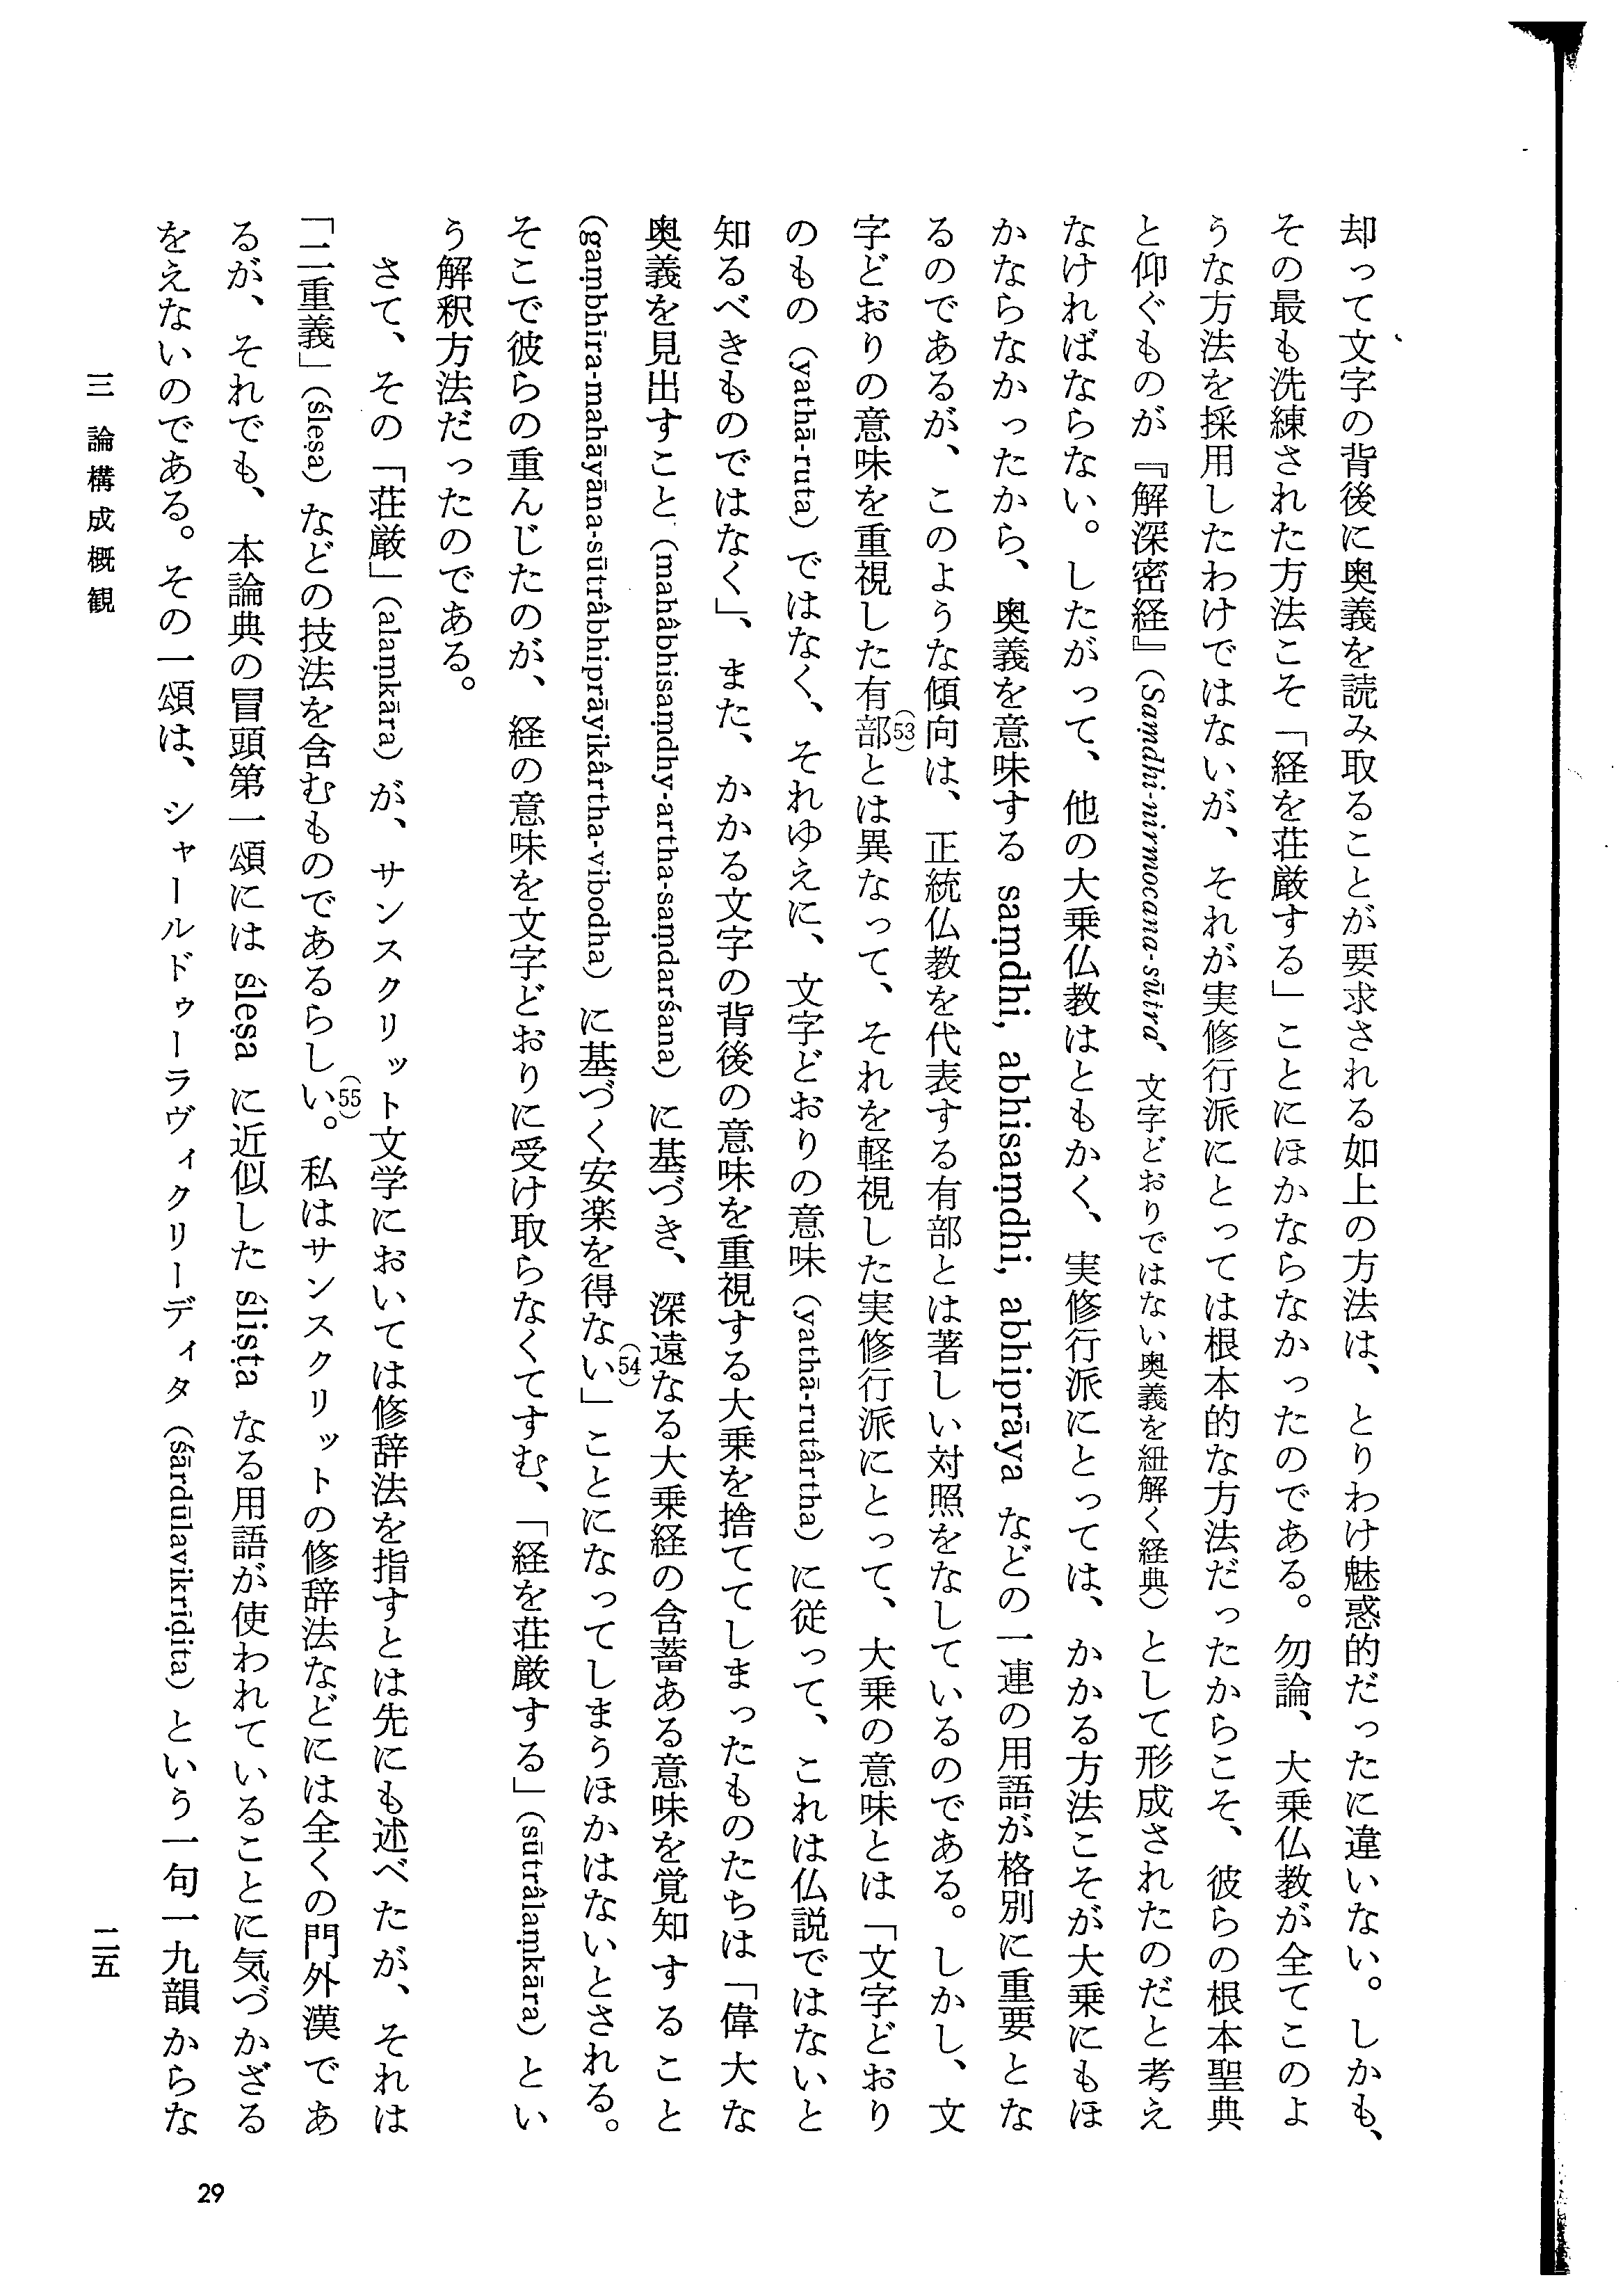 却って文字の背後に奥義を読み取ることが要求される如上の方法は、とりわけ魅惑的だったに違いない。しかも、
その最も洗練された方法こそ「経を荘厳する」ことにほかならなかったのである。勿論、大乗仏教が全てこのよ
うな方法を採用したわけではないが、それが実修行派にとっては根本的な方法だったからこそ、彼らの根本聖典
と仰ぐものが『解深密経』(Saṃdhi-nirmocana-sūtra、文字どおりではない奥義を紐解く経典)として形成されたのだと考え
なければならない。したがって、他の大乗仏教はともかく、実修行派にとっては、かかる方法こそが大乗にもほ
かならなかったから、奥義を意味する saṃdhi, abhisaṃdhi, abhiprāya などの一連の用語が格別に重要とな
るのであるが、このような傾向は、正統仏教を代表する有部とは著しい対照をなしているのである。しかし、文
字どおりの意味を重視した有部(53)とは異なって、それを軽視した実修行派にとって、大乗の意味とは「文字どおり
のもの(yathā-ruta)ではなく、それゆえに、文字どおりの意味(yathā-rutârtha)に従って、これは仏説ではないと
知るべきものではなく」、また、かかる文字の背後の意味を重視する大乗を捨ててしまったものたちは「偉大な
奥義を見出すこと(mahâbhisaṃdhy-artha-saṃdarśana)に基づき、深遠なる大乗経の含蓄ある意味を覚知すること
(gaṃbhīra-mahāyāna-sūtrâbhiprāyikârtha-vibodha)に基づく安楽を得ない(54)」ことになってしまうほかはないとされる。
そこで彼らの重んじたのが、経の意味を文字どおりに受け取らなくてすむ、「経を荘厳する」(sūtrâlaṃkāra)とい
う解釈方法だったのである。
さて、その「荘厳」(alaṃkāra)が、サンスクリット文学においては修辞法を指すとは先にも述べたが、それは
「二重義」(śleṣa)などの技法を含むものであるらしい(55)。私はサンスクリットの修辞法などには全くの門外漢であ
るが、それでも、本論典の冒頭第一頌には śleṣa に近似した śliṣṭa なる用語が使われていることに気づかざる
をえないのである。その一頌は、シャールドゥーラヴィクリーディタ(śārdūlavikrīḍita)という一句一九韻からな
三 論構成概観
二五
29